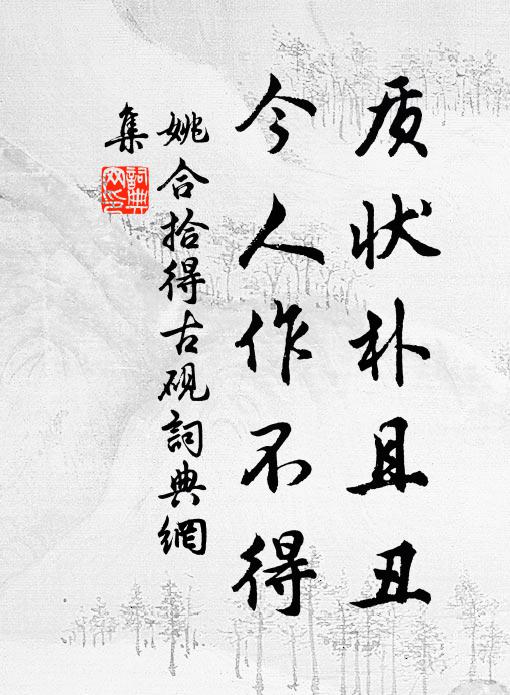 质状朴且丑
今人作不得
姚合拾得古砚詞典網
集
詞典
网印